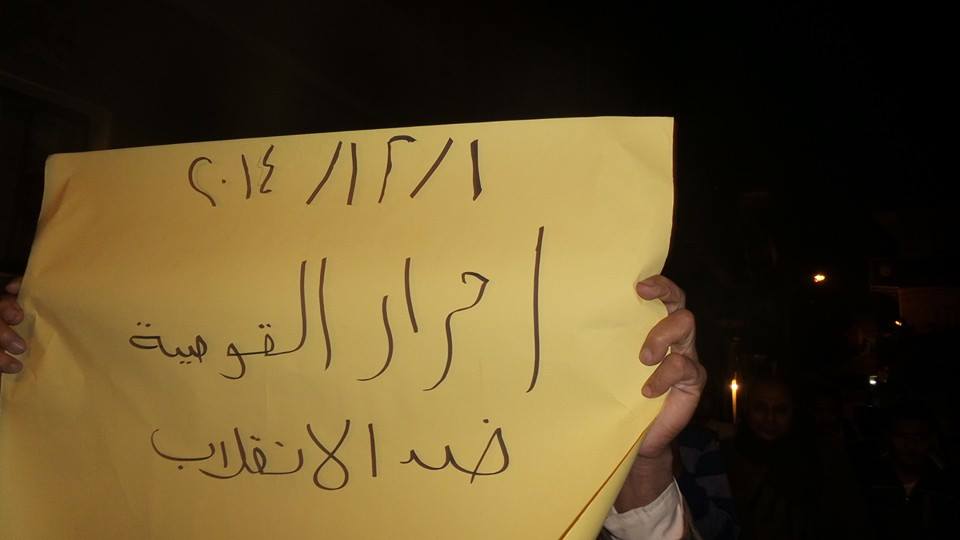 ١/١٢/٢٠١٤
احرار القوصية
ضد الانقلاب